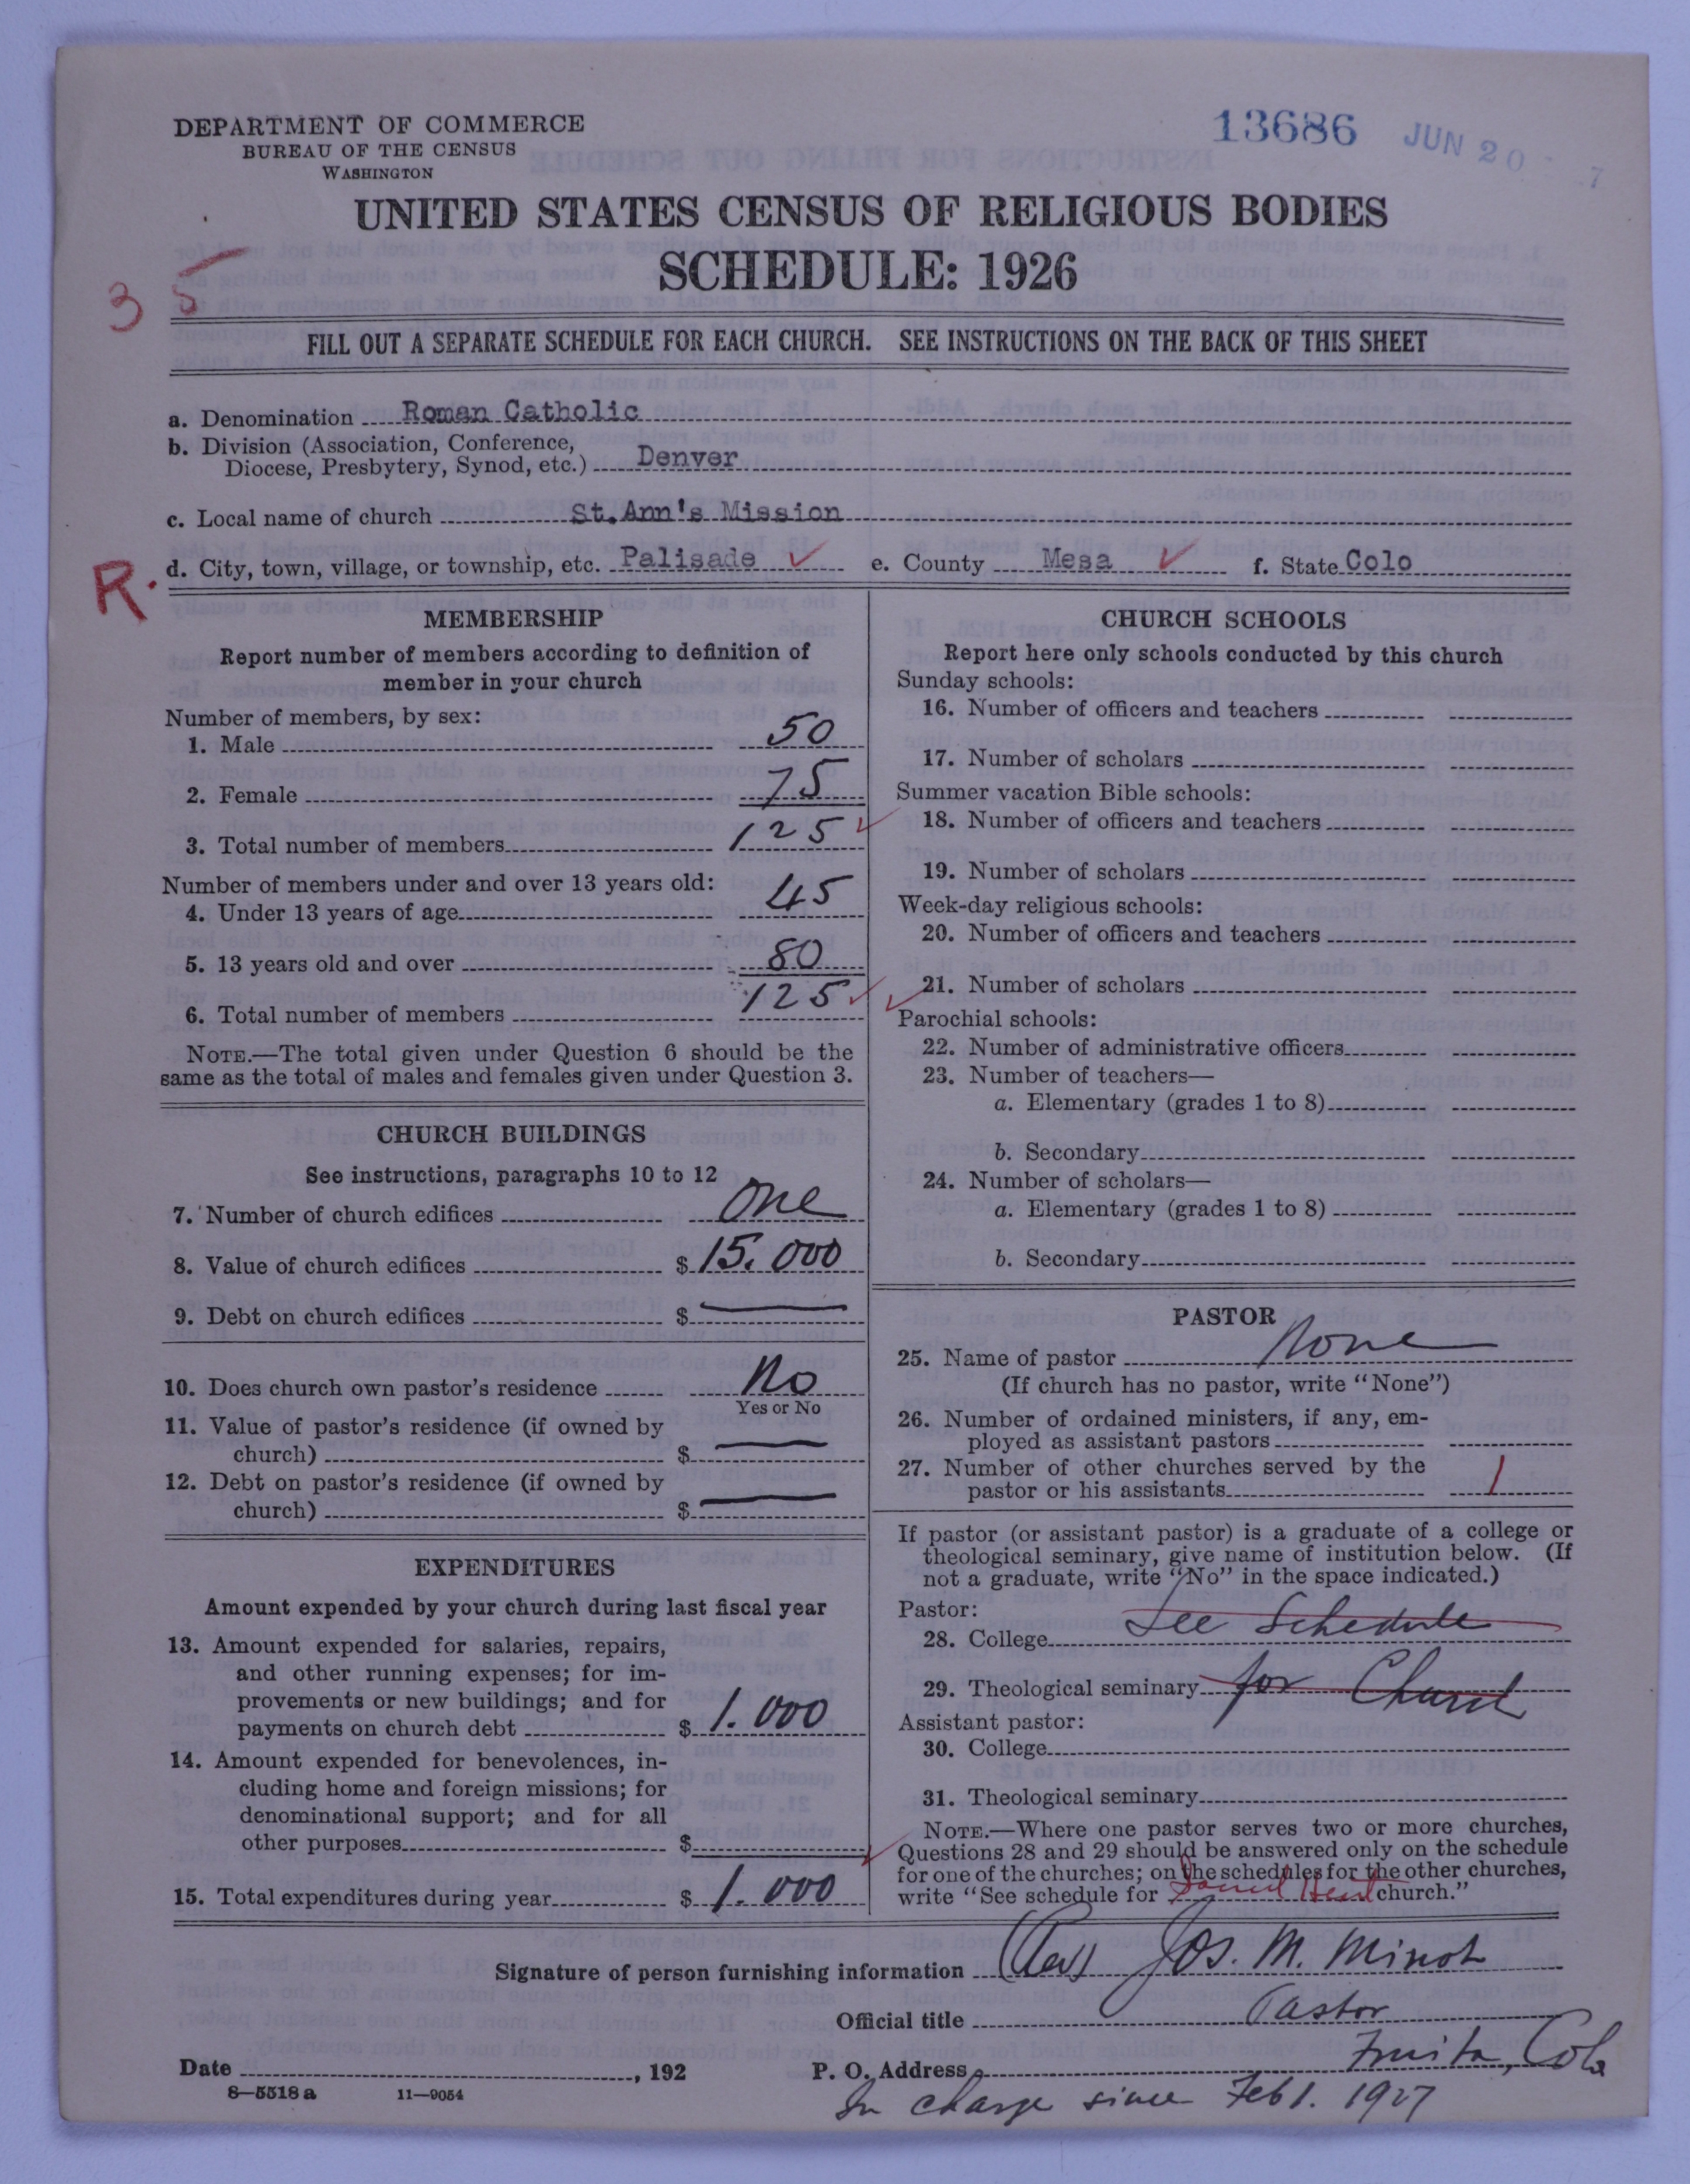 DEPARTMENT OF COMMERCE
BUREAU OF THE CENSUS
WASHINGTON
13686 JUN 20 7
UNITED STATES CENSUS OF RELIGIOUS BODIES
SCHEDULE: 1926
35
FILL OUT A SEPARATE SCHEDULE FOR EACH CHURCH. SEE INSTRUCTIONS ON THE BACK OF THIS SHEET
a. Denomination Roman Catholic
b. Division (Association, Conference,
Diocese, Presbytery, Synod, etc.) Denver
c. Local name of church St.Ann's Mission
R. d. City, town, village, or township, etc. Palisade ✓ e. County Mesa ✓ f. State Colo
MEMBERSHIP
Report number of members according to definition of
member in your church
Number of members, by sex:
1. Male 50
2. Female 75
3. Total number of members 125 ✓
Number of members under and over 13 years old:
4. Under 13 years of age 45
5. 13 years old and over 80
6. Total number of members 125 ✓
NOTE.—The total given under Question 6 should be the
same as the total of males and females given under Question 3.
CHURCH BUILDINGS
See instructions, paragraphs 10 to 12
7. Number of church edifices One
8. Value of church edifices $ 15.000
9. Debt on church edifices $ —
10. Does church own pastor's residence No
Yes or No
11. Value of pastor's residence (if owned by
church) $ —
12. Debt on pastor's residence (if owned by
church) $ —
EXPENDITURES
Amount expended by your church during last fiscal year
13. Amount expended for salaries, repairs,
and other running expenses; for im-
provements or new buildings; and for
payments on church debt $ 1.000
14. Amount expended for benevolences, in-
cluding home and foreign missions; for
denominational support; and for all
other purposes $
15. Total expenditures during year $ 1.000 ✓
CHURCH SCHOOLS
Report here only schools conducted by this church
Sunday schools:
16. Number of officers and teachers
17. Number of scholars
Summer vacation Bible schools:
18. Number of officers and teachers
19. Number of scholars
Week-day religious schools:
20. Number of officers and teachers
✓ 21. Number of scholars
Parochial schools:
22. Number of administrative officers
23. Number of teachers—
a. Elementary (grades 1 to 8)
b. Secondary
24. Number of scholars—
a. Elementary (grades 1 to 8)
b. Secondary
PASTOR
25. Name of pastor None
(If church has no pastor, write "None")
26. Number of ordained ministers, if any, em-
ployed as assistant pastors
27. Number of other churches served by the
pastor or his assistants 1
If pastor (or assistant pastor) is a graduate of a college or
theological seminary, give name of institution below. (If
not a graduate, write "No" in the space indicated.)
Pastor:
28. College See Schedule
29. Theological seminary for Church
Assistant pastor:
30. College
31. Theological seminary
NOTE.—Where one pastor serves two or more churches,
Questions 28 and 29 should be answered only on the schedule
for one of the churches; on the schedules for the other churches,
write "See schedule for Sacred Heart church."
Signature of person furnishing information (Rev) Jos. M. Minot
Official title Pastor
Date , 192 P. O. Address Fruita, Colo
8-5518 a 11-9054
In charge since Feb 1. 1927